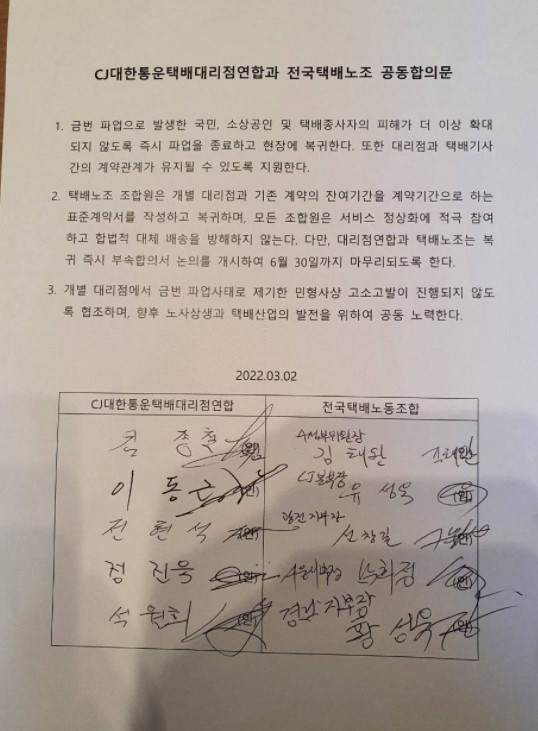 CJ대한통운택배대리점연합과 전국택배노조 공동합의문
1. 금번 파업으로 발생한 국민, 소상공인 및 택배종사자의 피해가 더 이상 확대
되지 않도록 즉시 파업을 종료하고 현장에 복귀한다. 또한 대리점과 택배기사
간의 계약관계가 유지될 수 있도록 지원한다.
2. 택배노조 조합원은 개별 대리점과 기존 계약의 잔여기간을 계약기간으로 하는
표준계약서를 작성하고 복귀하며, 모든 조합원은 서비스 정상화에 적극 참여
하고 합법적 대체 배송을 방해하지 않는다. 다만, 대리점연합과 택배노조는 복
귀 즉시 부속합의서 논의를 개시하여 6월 30일까지 마무리되도록 한다.
3. 개별 대리점에서 금번 파업사태로 제기한 민형사상 고소고발이 진행되지 않도
록 협조하며, 향후 노사상생과 택배산업의 발전을 위하여 공동 노력한다.
2022.03.02
CJ대한통운택배대리점연합 전국택배노동조합
김 종철 (인)
수석부위원장
김 태완 (인)
이 동 (인)
CJ본부장
유 성욱 (인)
전 현 석 (인)
지부장
선 창길 (인)
정 진욱 (인)
서울지부장 (인)
석 원희 (인)
지부장
황 성욱 (인)